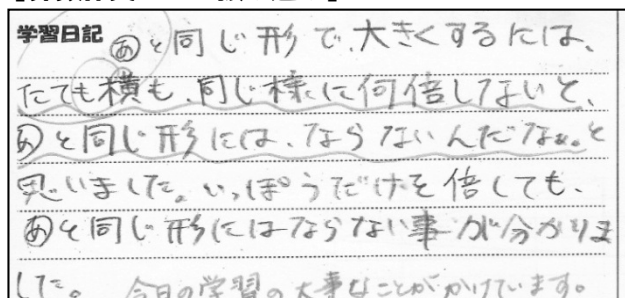 学習日記 あと同じ形で、大きくするには、
たても横も、同じ様に何倍しないと、
あと同じ形には、ならないんだなぁ。と
思いました。いっぽうだけを倍しても、
あと同じ形にはならない事が分かりま
した。 今日の学習の大事なことがかけています。